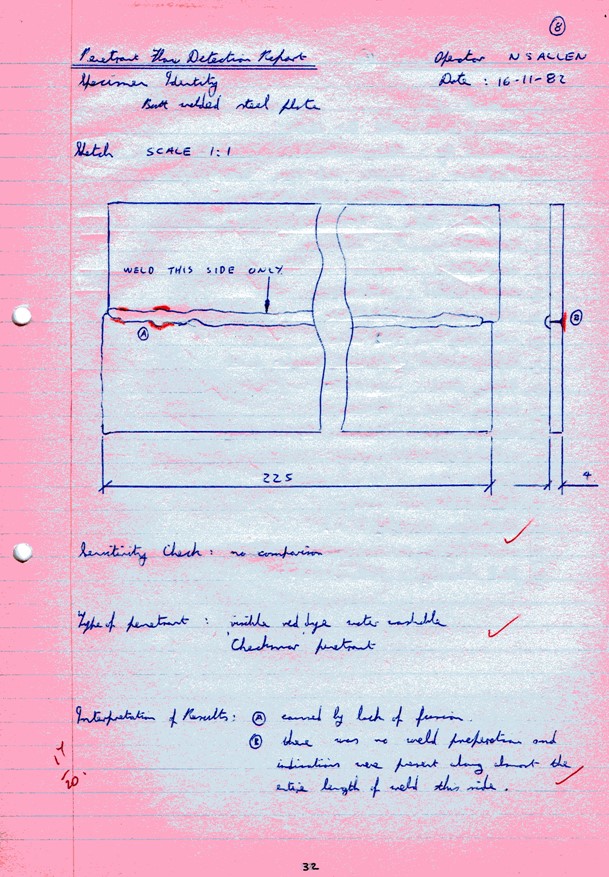 8
Penetrant Flaw Detection Report
Operator N S ALLEN
Specimen Identity
Date : 16-11-82
Butt welded steel plate
Sketch SCALE 1:1
WELD THIS SIDE ONLY
A
B
225
4
Sensitivity Check : no comparison
Type of penetrant : visible red dye water washable
'Checkmor' penetrant
Interpretation of Results: A caused by lack of fusion.
B there was no weld preparation and
indications were present along almost the
entire length of weld this side.
17
/20.
32